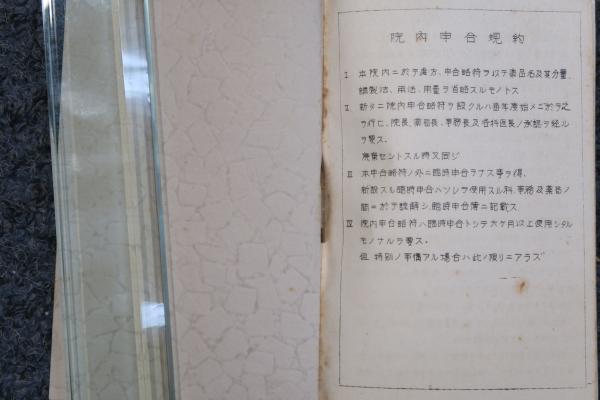 院內申合規約
I. 本院内ニ於テ處方、申合略符ヲ以テ藥品名及其分量、
調製法、用法、用量ヲ省略スルモノトス
II. 新タニ院内申合略符ヲ設クルハ毎年度始メニ於テ之
ヲ行ヒ、院長、藥局長、事務長及各科医長ノ承認ヲ経ル
ヲ要ス.
廃棄セントスル時又同ジ
III 本申合略符ノ外ニ臨時申合ヲナス事ヲ得、
新設スル臨時申合ハソレヲ使用スル科、事務及藥局ノ
間ニ於テ諒解シ、臨時申合簿ニ記載ス
IV 院内申合略符ハ臨時申合トシテ六ケ月以上使用シタル
モノナルヲ要ス.
但 特別ノ事情アル場合ハ此ノ限リニアラズ